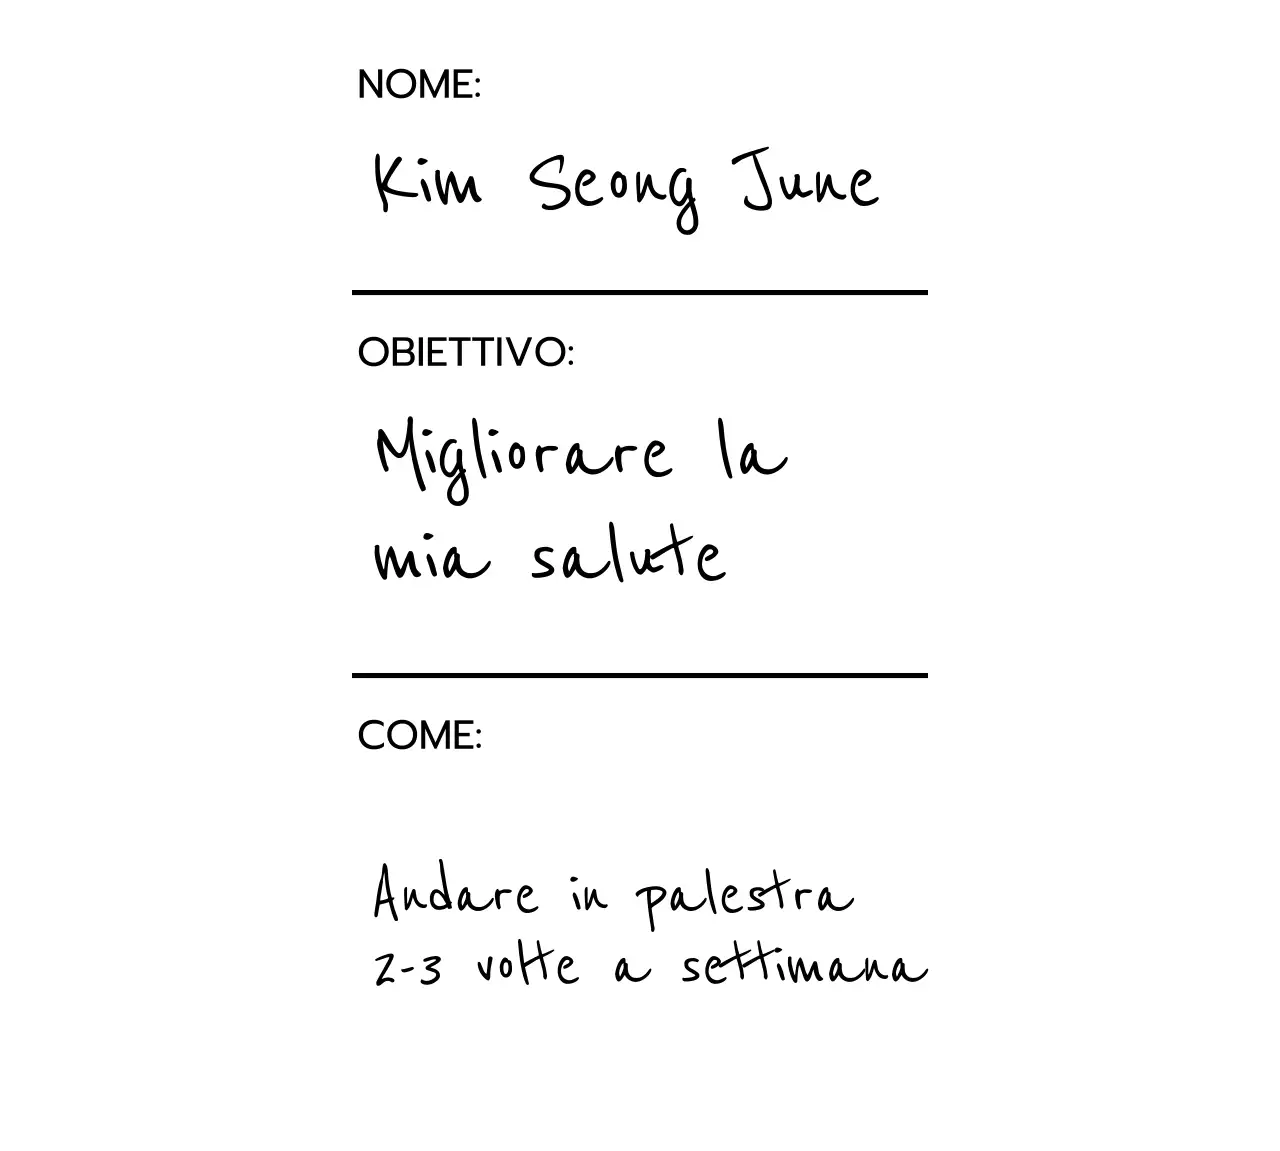 NOME:
Kim Seong June
OBIETTIVO:
Migliorare la
mia salute
COME:
Andare in palestra
2-3 volte a settimana